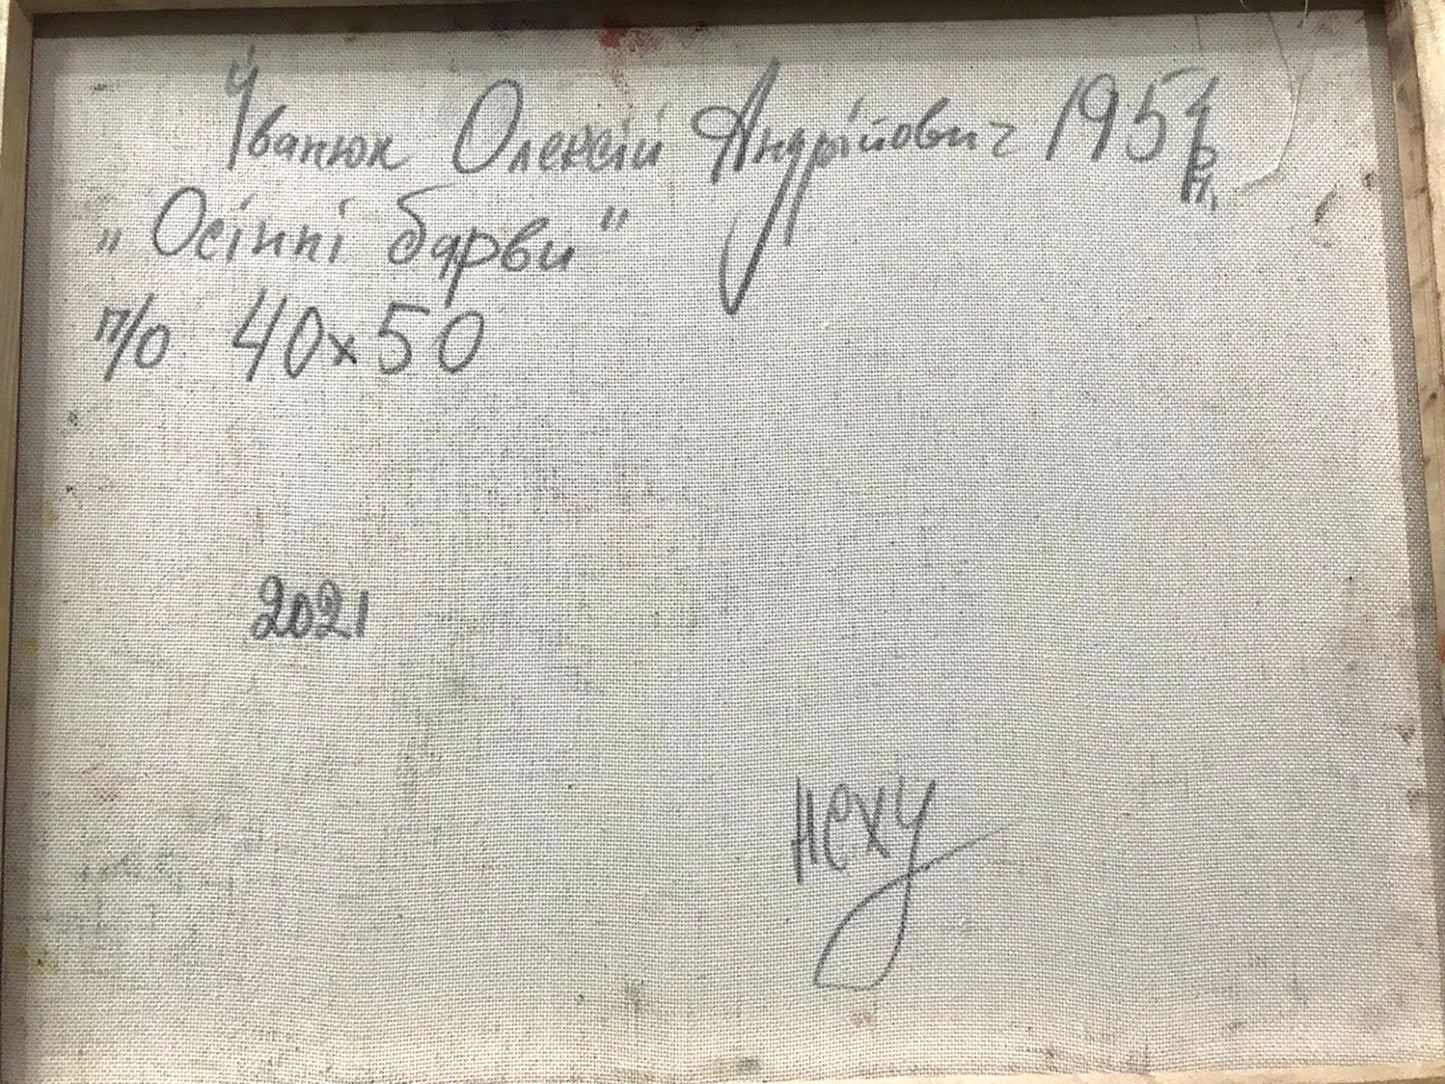 Іванюк Олексій Андрійович 195
р
н.
„Осінні барви"
п/о 40x50
2021
неху